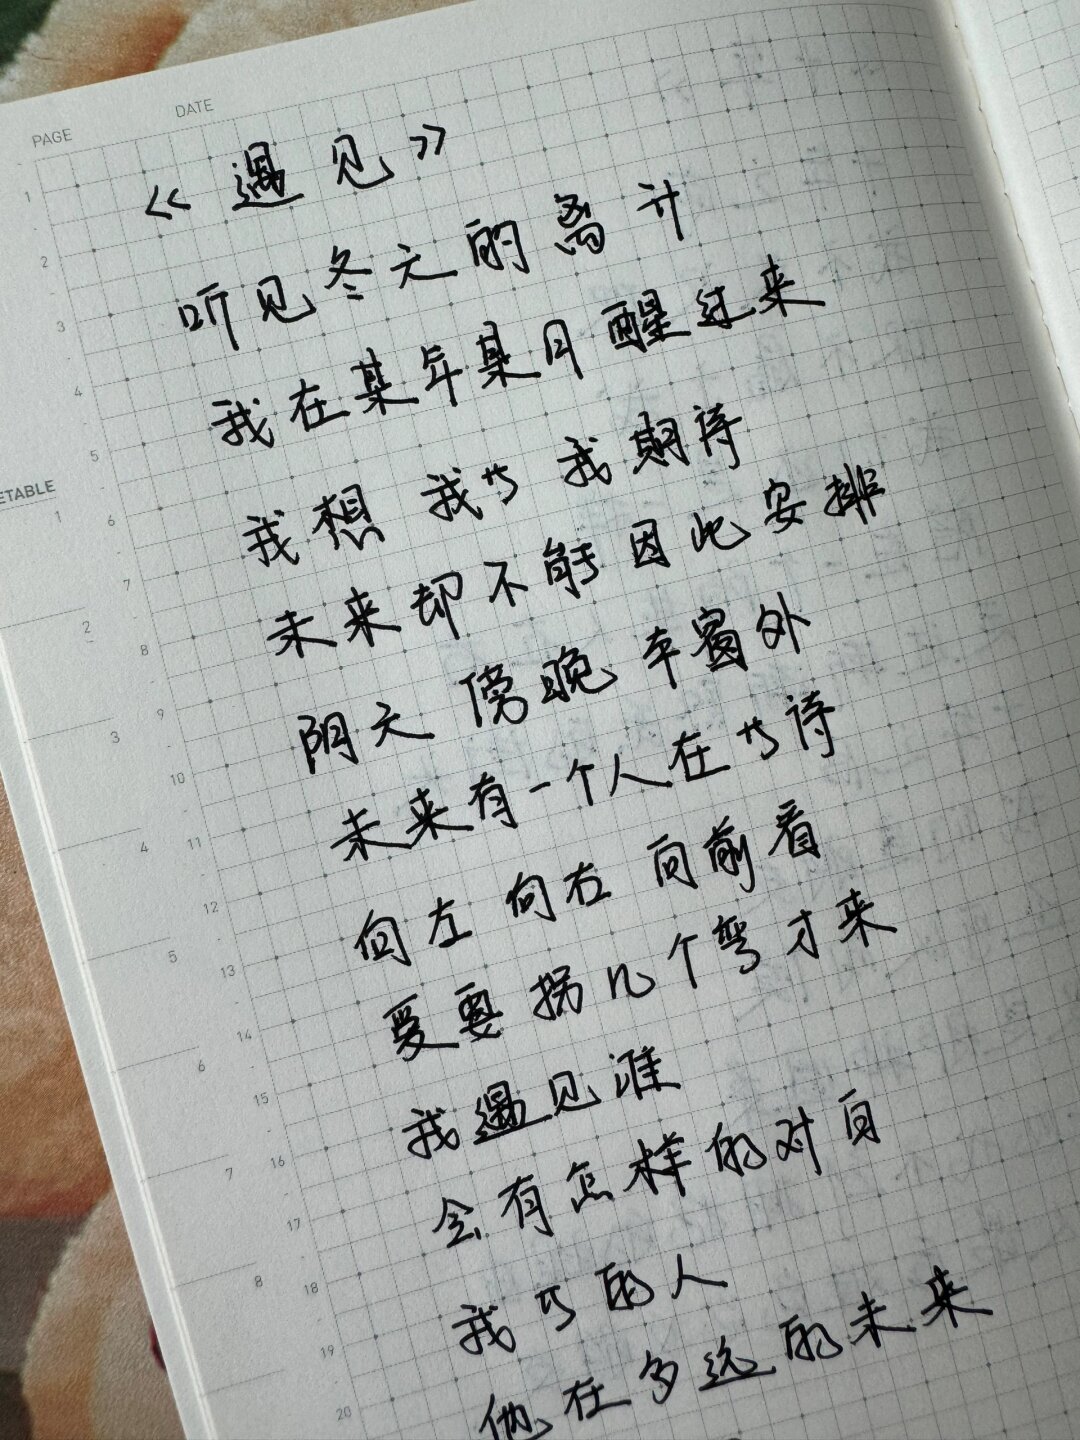 PAGE
DATE
《遇见》
听见冬天的离开
我在某年某月醒过来
我想 我等 我期待
未来却不能因此安排
阴天 傍晚 车窗外
未来有一个人在等待
向左 向右 向前看
爱要拐几个弯才来
我遇见谁
会有怎样的对白
我等的人
他在多远的未来
1
2
3
4
5
6
7
8
9
10
11
12
13
14
15
16
17
18
19
20
ETABLE
1
2
3
4
5
6
7
8